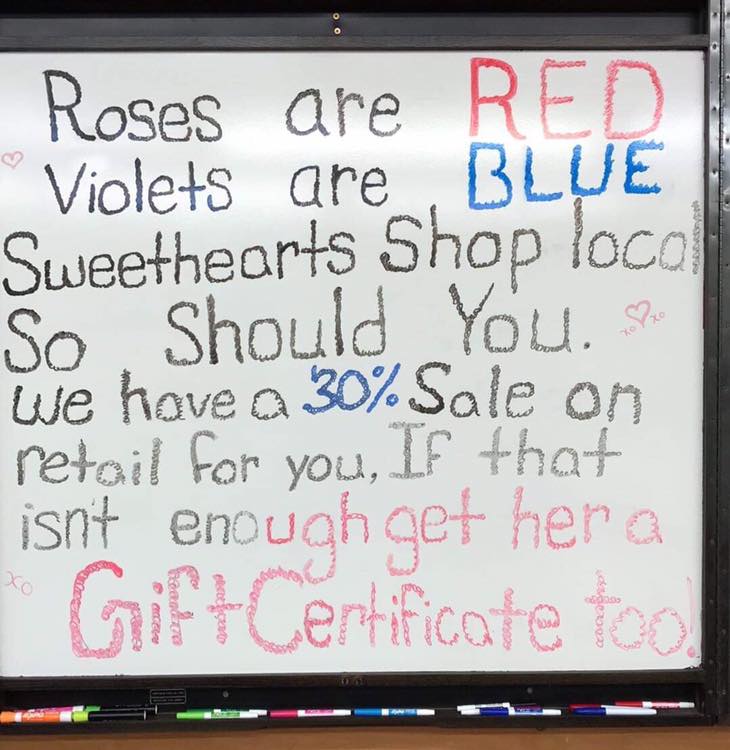 Roses are RED
Violets are BLUE
Sweethearts Shop local
So Should You.
xo xo
we have a 30% Sale on
retail for you, If that
isn't enough get her a
xo
Gift Certificate too!